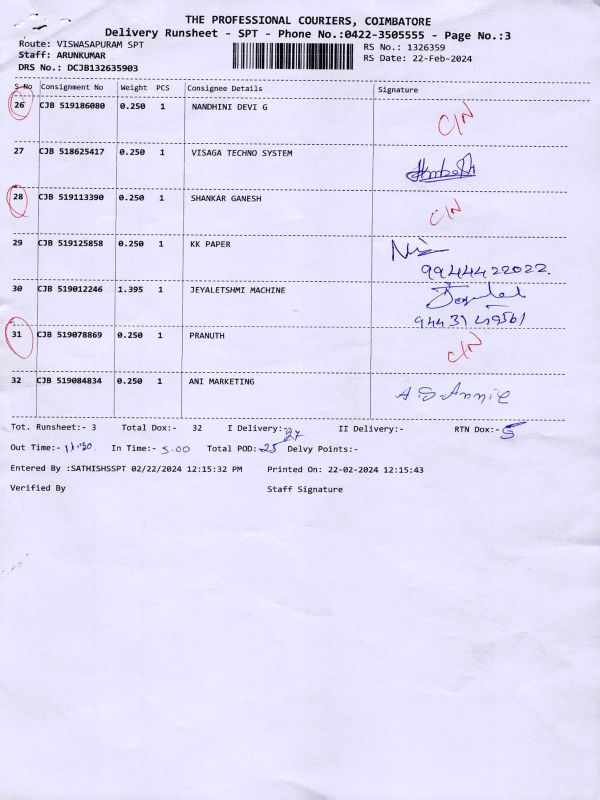 THE PROFESSIONAL COURIERS, COIMBATORE
Delivery Runsheet - SPT - Phone No.:0422-3505555 - Page No.:3
Route: VISWASAPURAM SPT RS No.: 1326359
Staff: ARUNKUMAR RS Date: 22-Feb-2024
DRS No.: DCJB132635903
S No Consignment No Weight PCS Consignee Details Signature
26 CJB 519186080 0.250 1 NANDHINI DEVI G C/N
27 CJB 518625417 0.250 1 VISAGA TECHNO SYSTEM
28 CJB 519113390 0.250 1 SHANKAR GANESH C/N
29 CJB 519125858 0.250 1 KK PAPER
9944422022.
30 CJB 519012246 1.395 1 JEYALETSHMI MACHINE
31 CJB 519078869 0.250 1 PRANUTH C/N
32 CJB 519084834 0.250 1 ANI MARKETING
Tot. Runsheet:- 3 Total Dox:- 32 I Delivery:- 27 II Delivery:- RTN Dox:- 5
Out Time:- 11.30 In Time:- 5.00 Total POD:- 25 Delvy Points:-
Entered By :SATHISHSSPT 02/22/2024 12:15:32 PM Printed On: 22-02-2024 12:15:43
Verified By Staff Signature